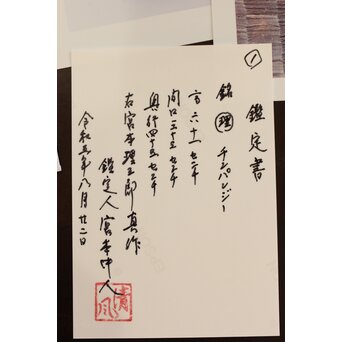 ①
鑑定書
銘 理 チンパンジー
高 六十一センチ
間口 三十三センチ
奥行 四十五センチ
右宮本理三郎真作
鑑定人 宮本中人
令和五年八月廿二日
清風